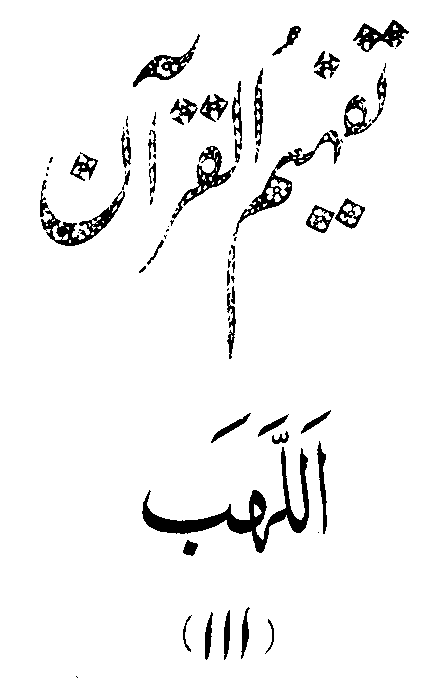 تفہیم القرآن
اَللَّهَب
(۱۱۱)